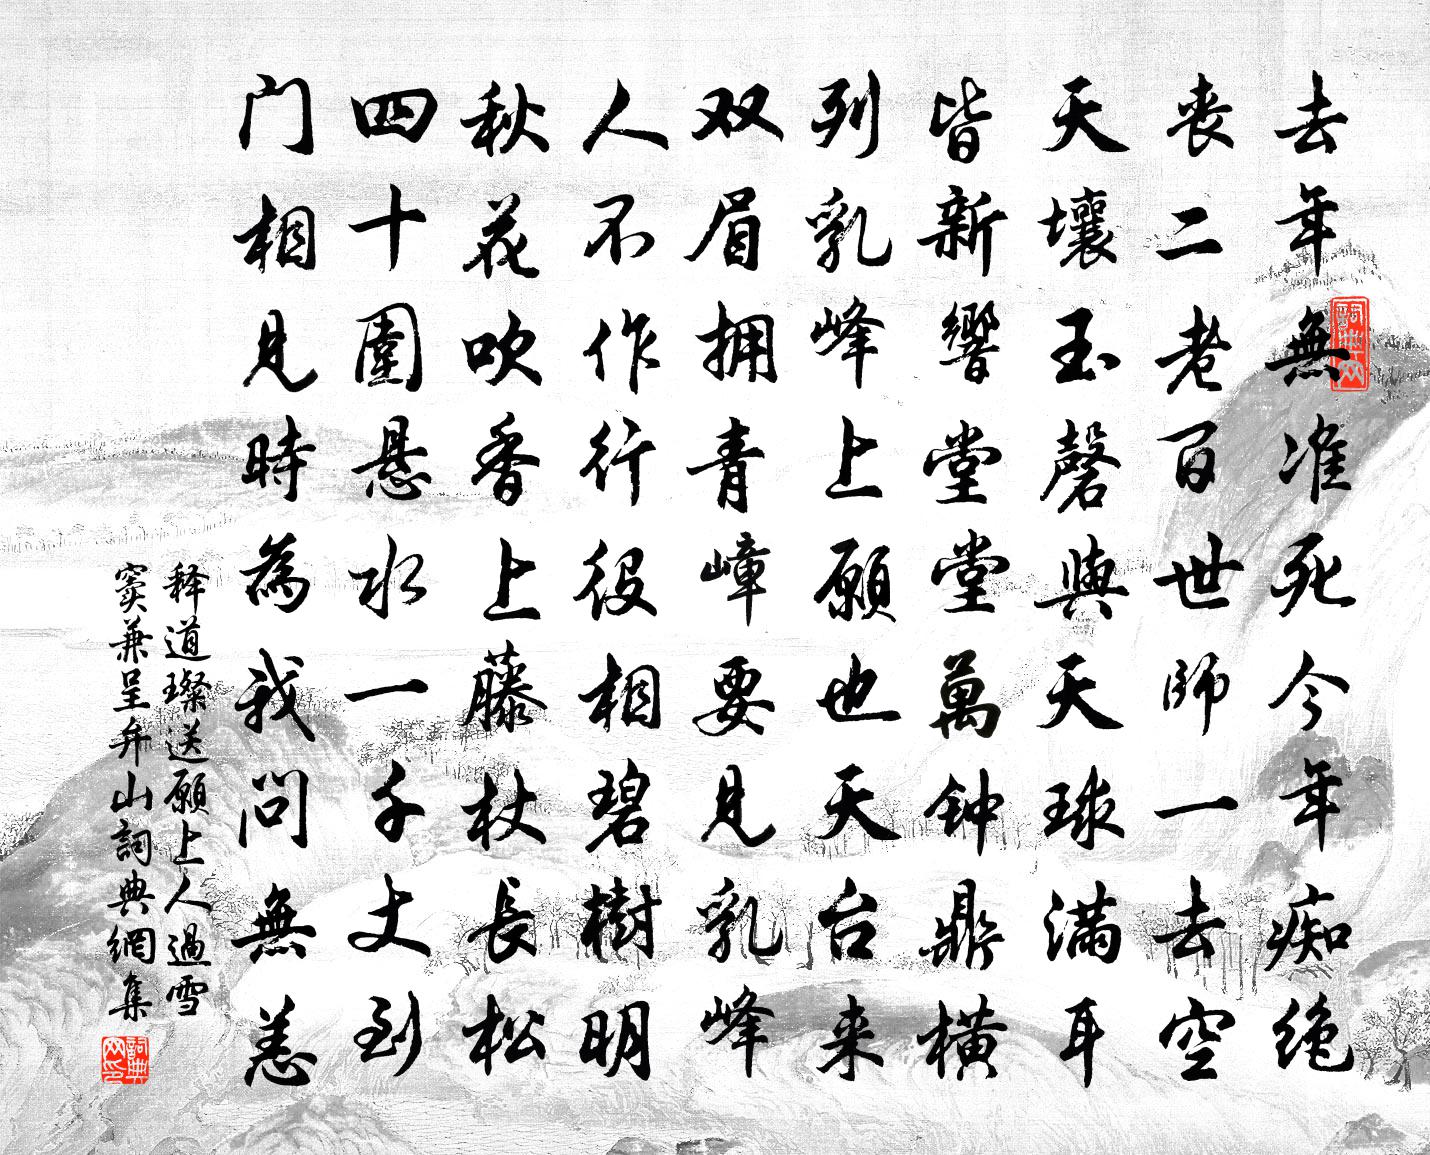 去年無准死今年痴绝
丧二老百世師一去空
天壤玉磬與天球满耳
皆新響堂堂萬钟鼎横
列乳峰上願也天台来
双眉拥青嶂要見乳峰
人不作行役相碧樹明
秋花吹香上藤杖長松
四十圍悬水一千丈到
门相見時為我問無恙
释道璨送願上人過雪
窦兼呈弁山詞典網集
詞典网
詞典网印